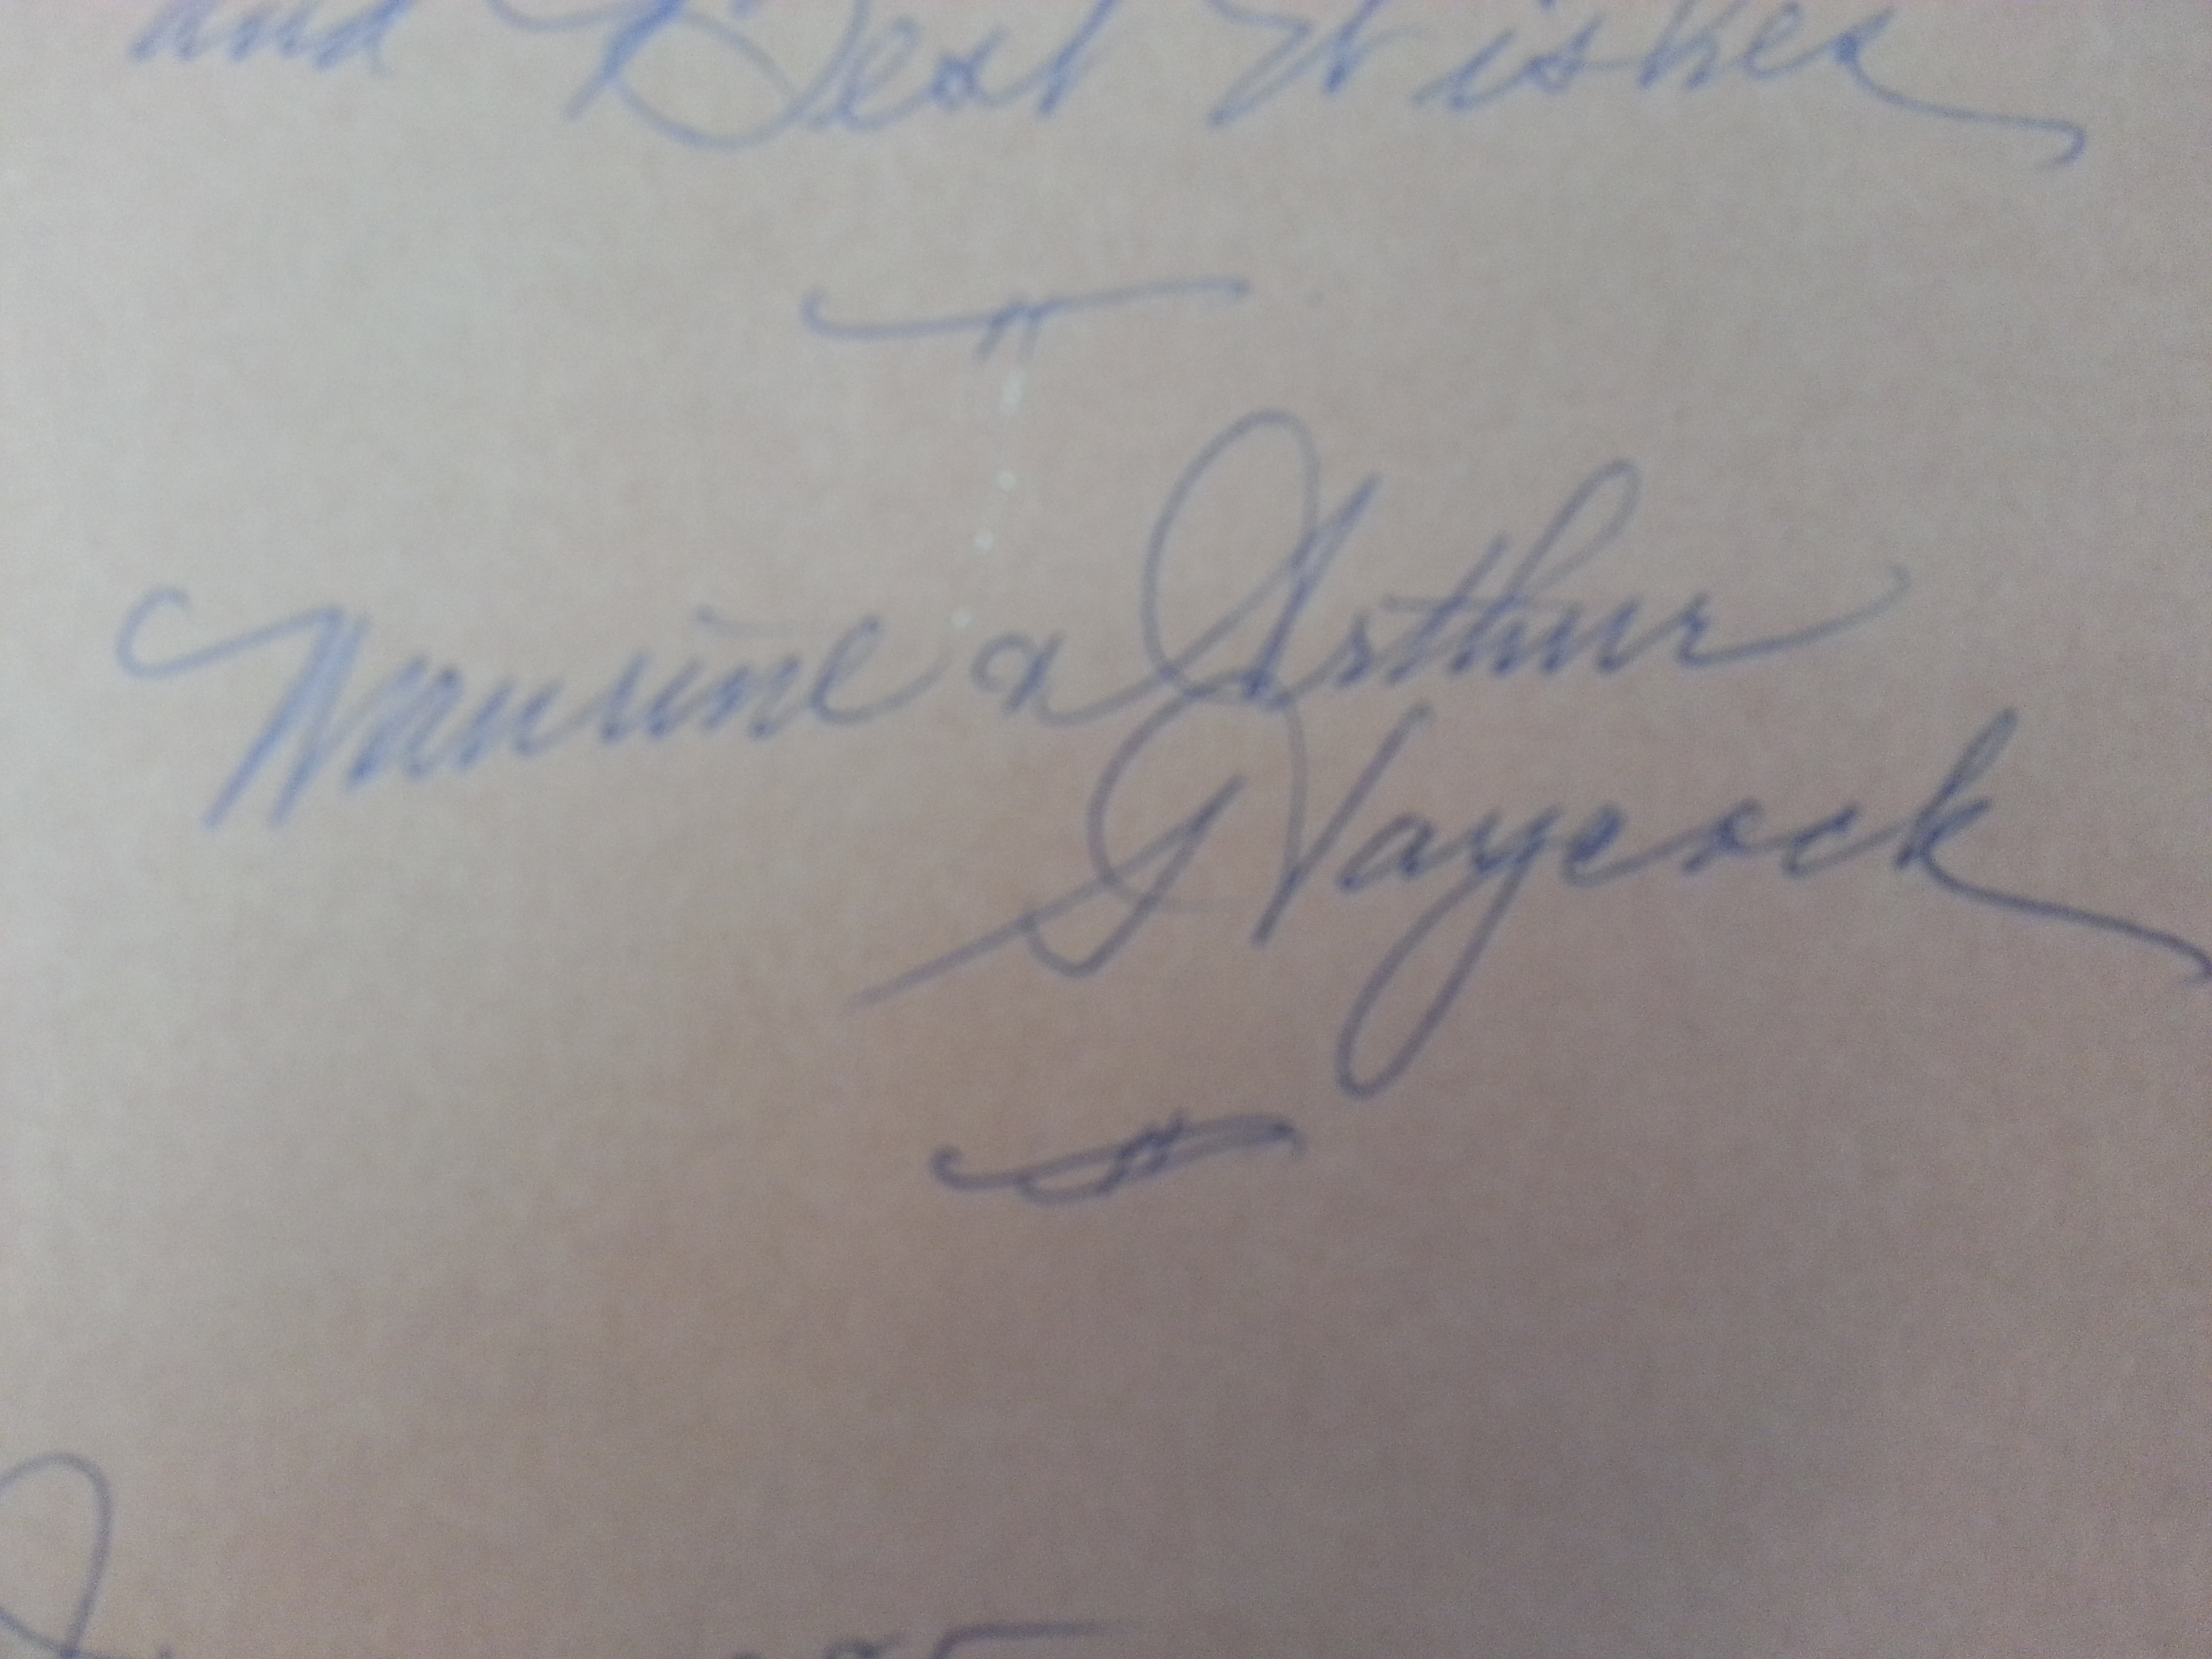 and Best Wishes
Maurine & Arthur
Haycock